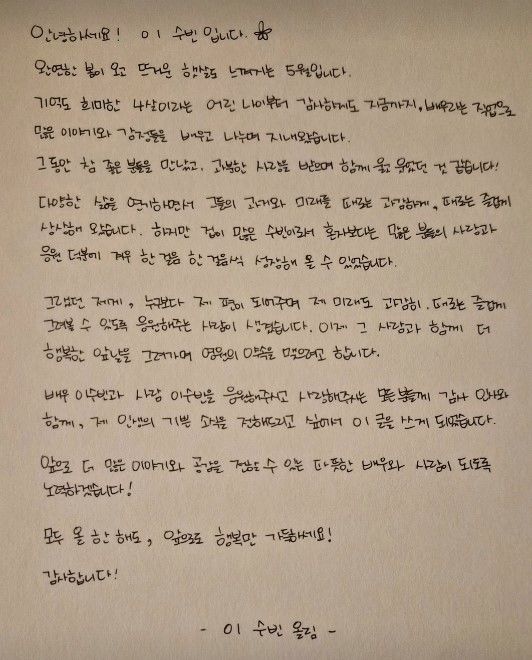 안녕하세요! 이 수빈 입니다.
완연한 봄이 오고 뜨거운 햇살도 느껴지는 5월입니다.
기억도 희미한 4살이라는 어린 나이부터 감사하게도 지금까지, 배우라는 직업으로
많은 이야기와 감정들을 배우고 나누며 지내왔습니다.
그동안 참 좋은 분들을 만났고, 과분한 사랑을 받으며 함께 울고 웃었던 것 같습니다!
다양한 삶을 연기하면서 그들의 과거와 미래를 때로는 과감하게, 때로는 즐겁게
상상해 왔습니다. 하지만 겁이 많은 수빈이로서 혼자보다는 많은 분들의 사랑과
응원 덕분에 겨우 한 걸음 한 걸음씩 성장해 올 수 있었습니다.
그랬던 저에게, 누구보다 제 편이 되어주며 제 미래도 과감히, 때로는 즐겁게
그려볼 수 있도록 응원해주는 사람이 생겼습니다. 이제 그 사랑과 함께 더
행복한 앞날을 그려가며 영원의 약속을 맺으려고 합니다.
배우 이수빈과 사람 이수빈을 응원해주시고 사랑해주시는 모든분들께 감사 인사와
함께, 제 인생의 기쁜 소식을 전해드리고 싶어서 이 글을 쓰게 되었습니다.
앞으로 더 많은 이야기와 공감을 전할 수 있는 따뜻한 배우와 사람이 되도록
노력하겠습니다!
모두 올 한 해도, 앞으로도 행복만 가득하세요!
감사합니다!
- 이 수빈 올림 -